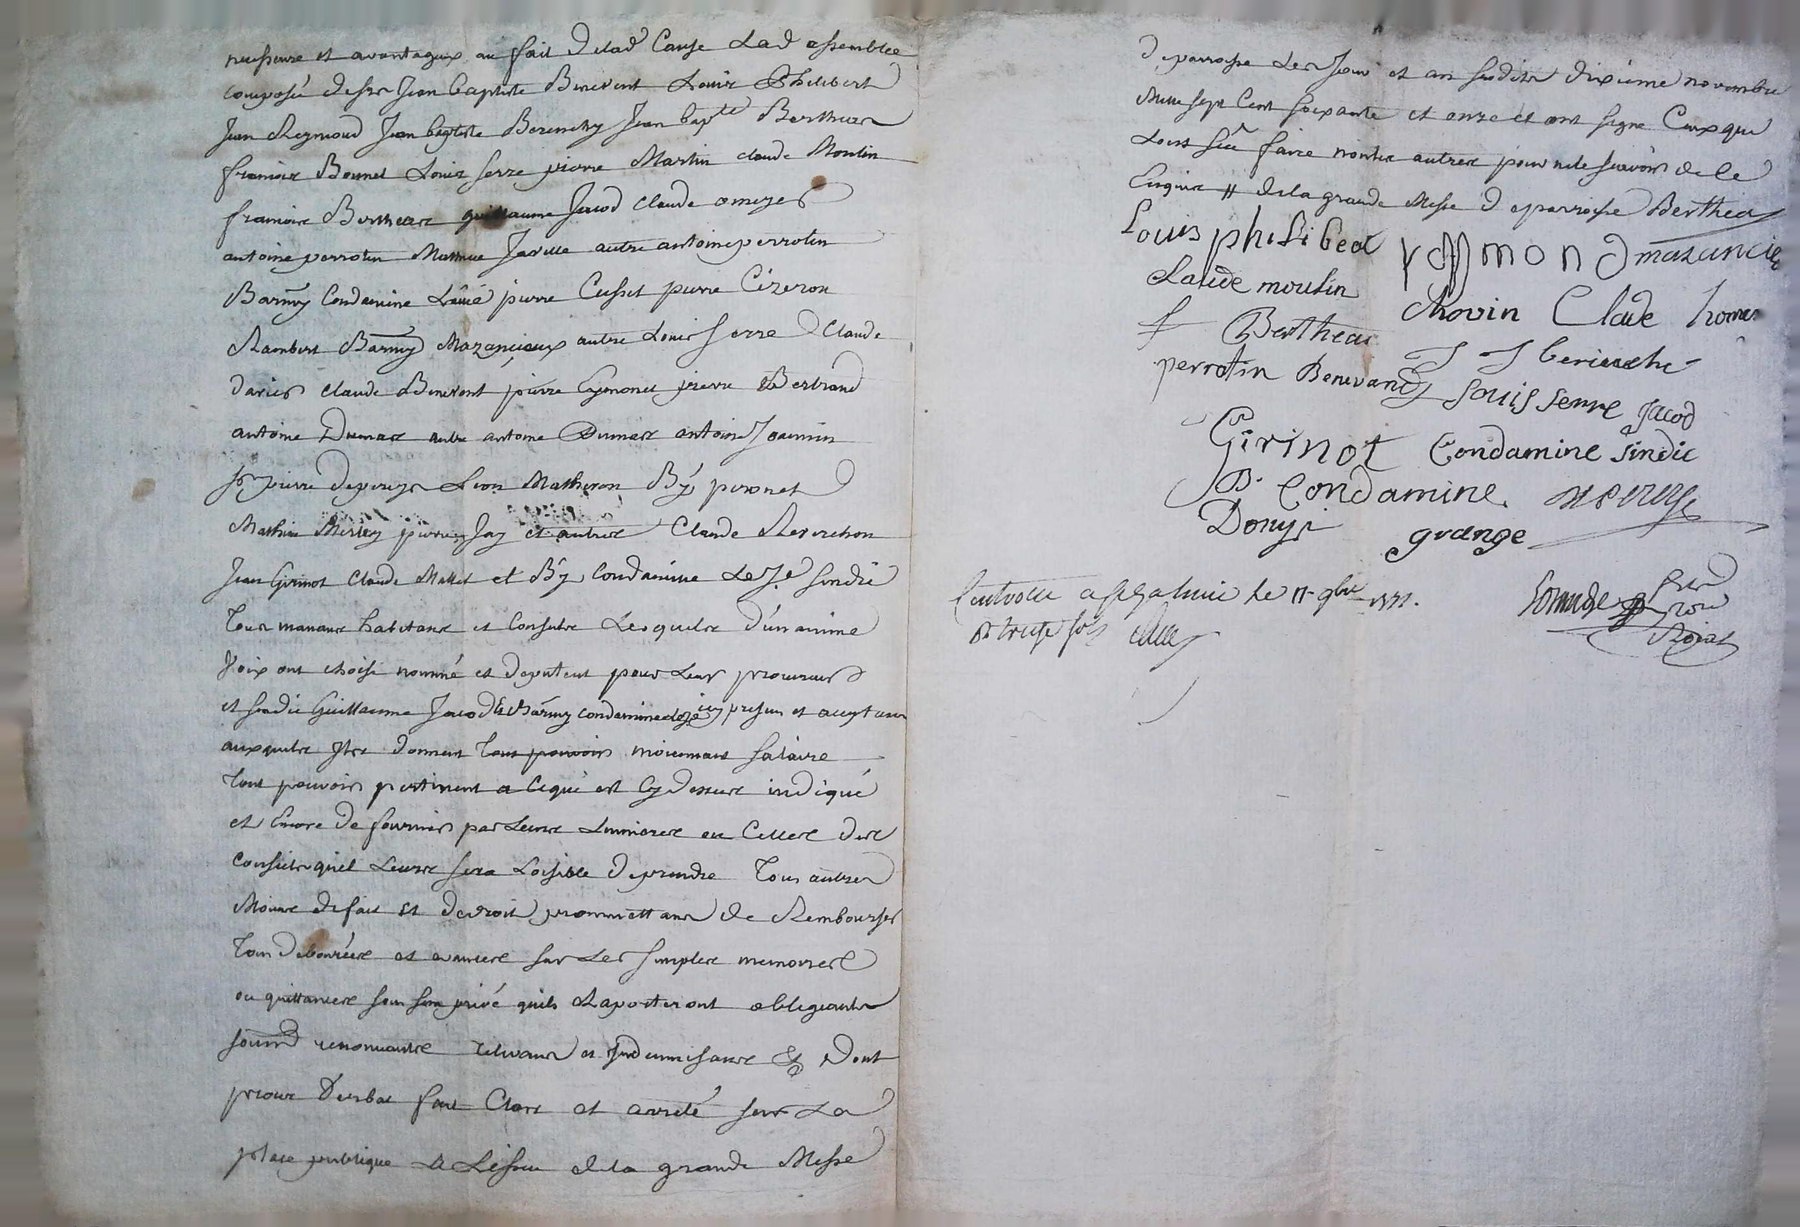 et avantageux au fait de lad cause Lad assemblée
composée desrs Jean baptiste Benevent Louis Philibert
Jean Reymond Jean baptiste Berenchy Jean bapte Berthear
francois Bonnet Louis serre pierre Martin claude Moulin
francois Berthear guillaume Jacod Claude
antoine perrotin Mathieu autre antoine perrotin
Barmy Condamine L'ainé pierre Cusset pierre Cizeron
Rambert Barmy Mazancieux autre Louis serre Claude
claude Benevent pierre Eymonet pierre Bertrand
antoine Dumas autre antoine Dumas antoine Joannin
sr pierre Leon Matheron By peronet
Mathieu Merley pierre Jay et autres Claude Reverchon
Jean Girinot Claude Mallet et By Condamine Le Je sindic
Tous manans habitans et Consorts Lesquels d'unanime
Voix ont choisi nommé et deputent pour Leur procureur
et sindic Guillaume Jacod et Barmy condamine leje icy presens et aceptans
auxquels Ils donnent Tous pouvoirs moienant salaire
Tout pouvoir pertinent a Ceque est Cy dessus indiqué
et Encore de fournir par Leurs Lumieres ou Celles des
Conseils quil Leurs sera Loisible deprendre Tous autres
Moiens defait et dedroit promettans de Rembourser
Tous debourées et avances sur Les simples memoires
ou quittances sous sein privé quils Raporteront obligeants
soumd renonceants relevans et Indemnisans & Dont
proces Verbal fait Clos et arrêté sur La
place publique a L'éssue de la grande Messe
deparroisse Les Jour et an susdits dixième novembre
Mille sept Cent soixante et onze et ont signé Ceux qui
L'ont sçu faire nonles autres pour nele sçavoir dece
Enquis // dela grande Messe deparroisse Berthear
Louis philibert reymond mazancieu
Claude moulin Chovin Clade
f Berthear J J berinche
perrotin Benevand Louis serre Jacod
Girinot Condamine sindic
B. Condamine
Donys grange
Controllé a St Galmier le 11 9bre 1771.
Rt treize sols
Roial